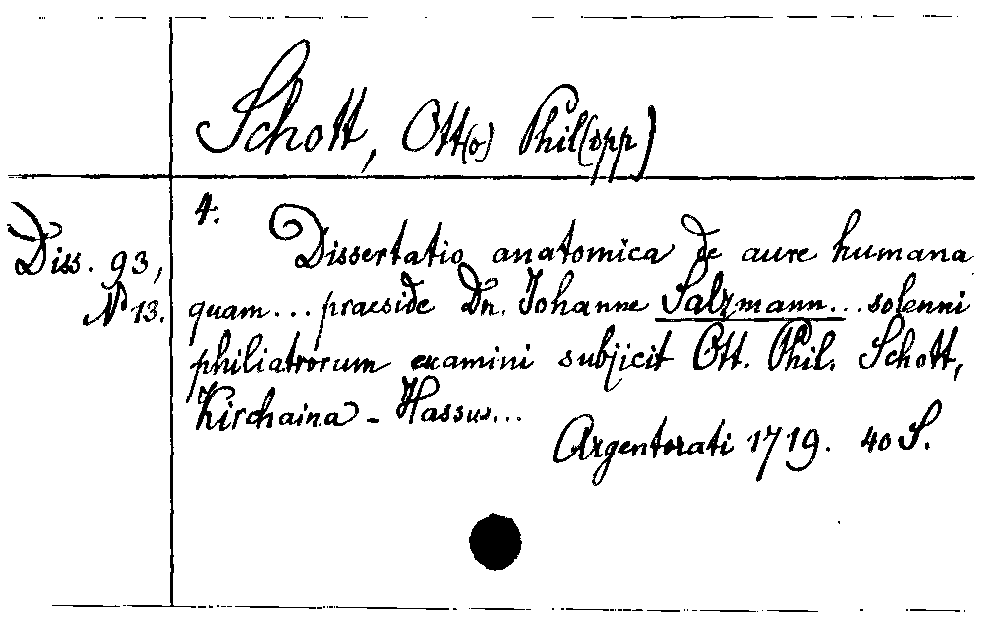 Schott, Ott(o) Phil(ipp)
4.
Diss. 93,
No 13.
Dissertatio anatomica de aure humana
quam... praeside Dn. Johanne Salzmann... solenni
philiatrorum examini subjicit Ott. Phil. Schott,
Kirchaina - Hassus...
Argentorati 1719. 40 S.